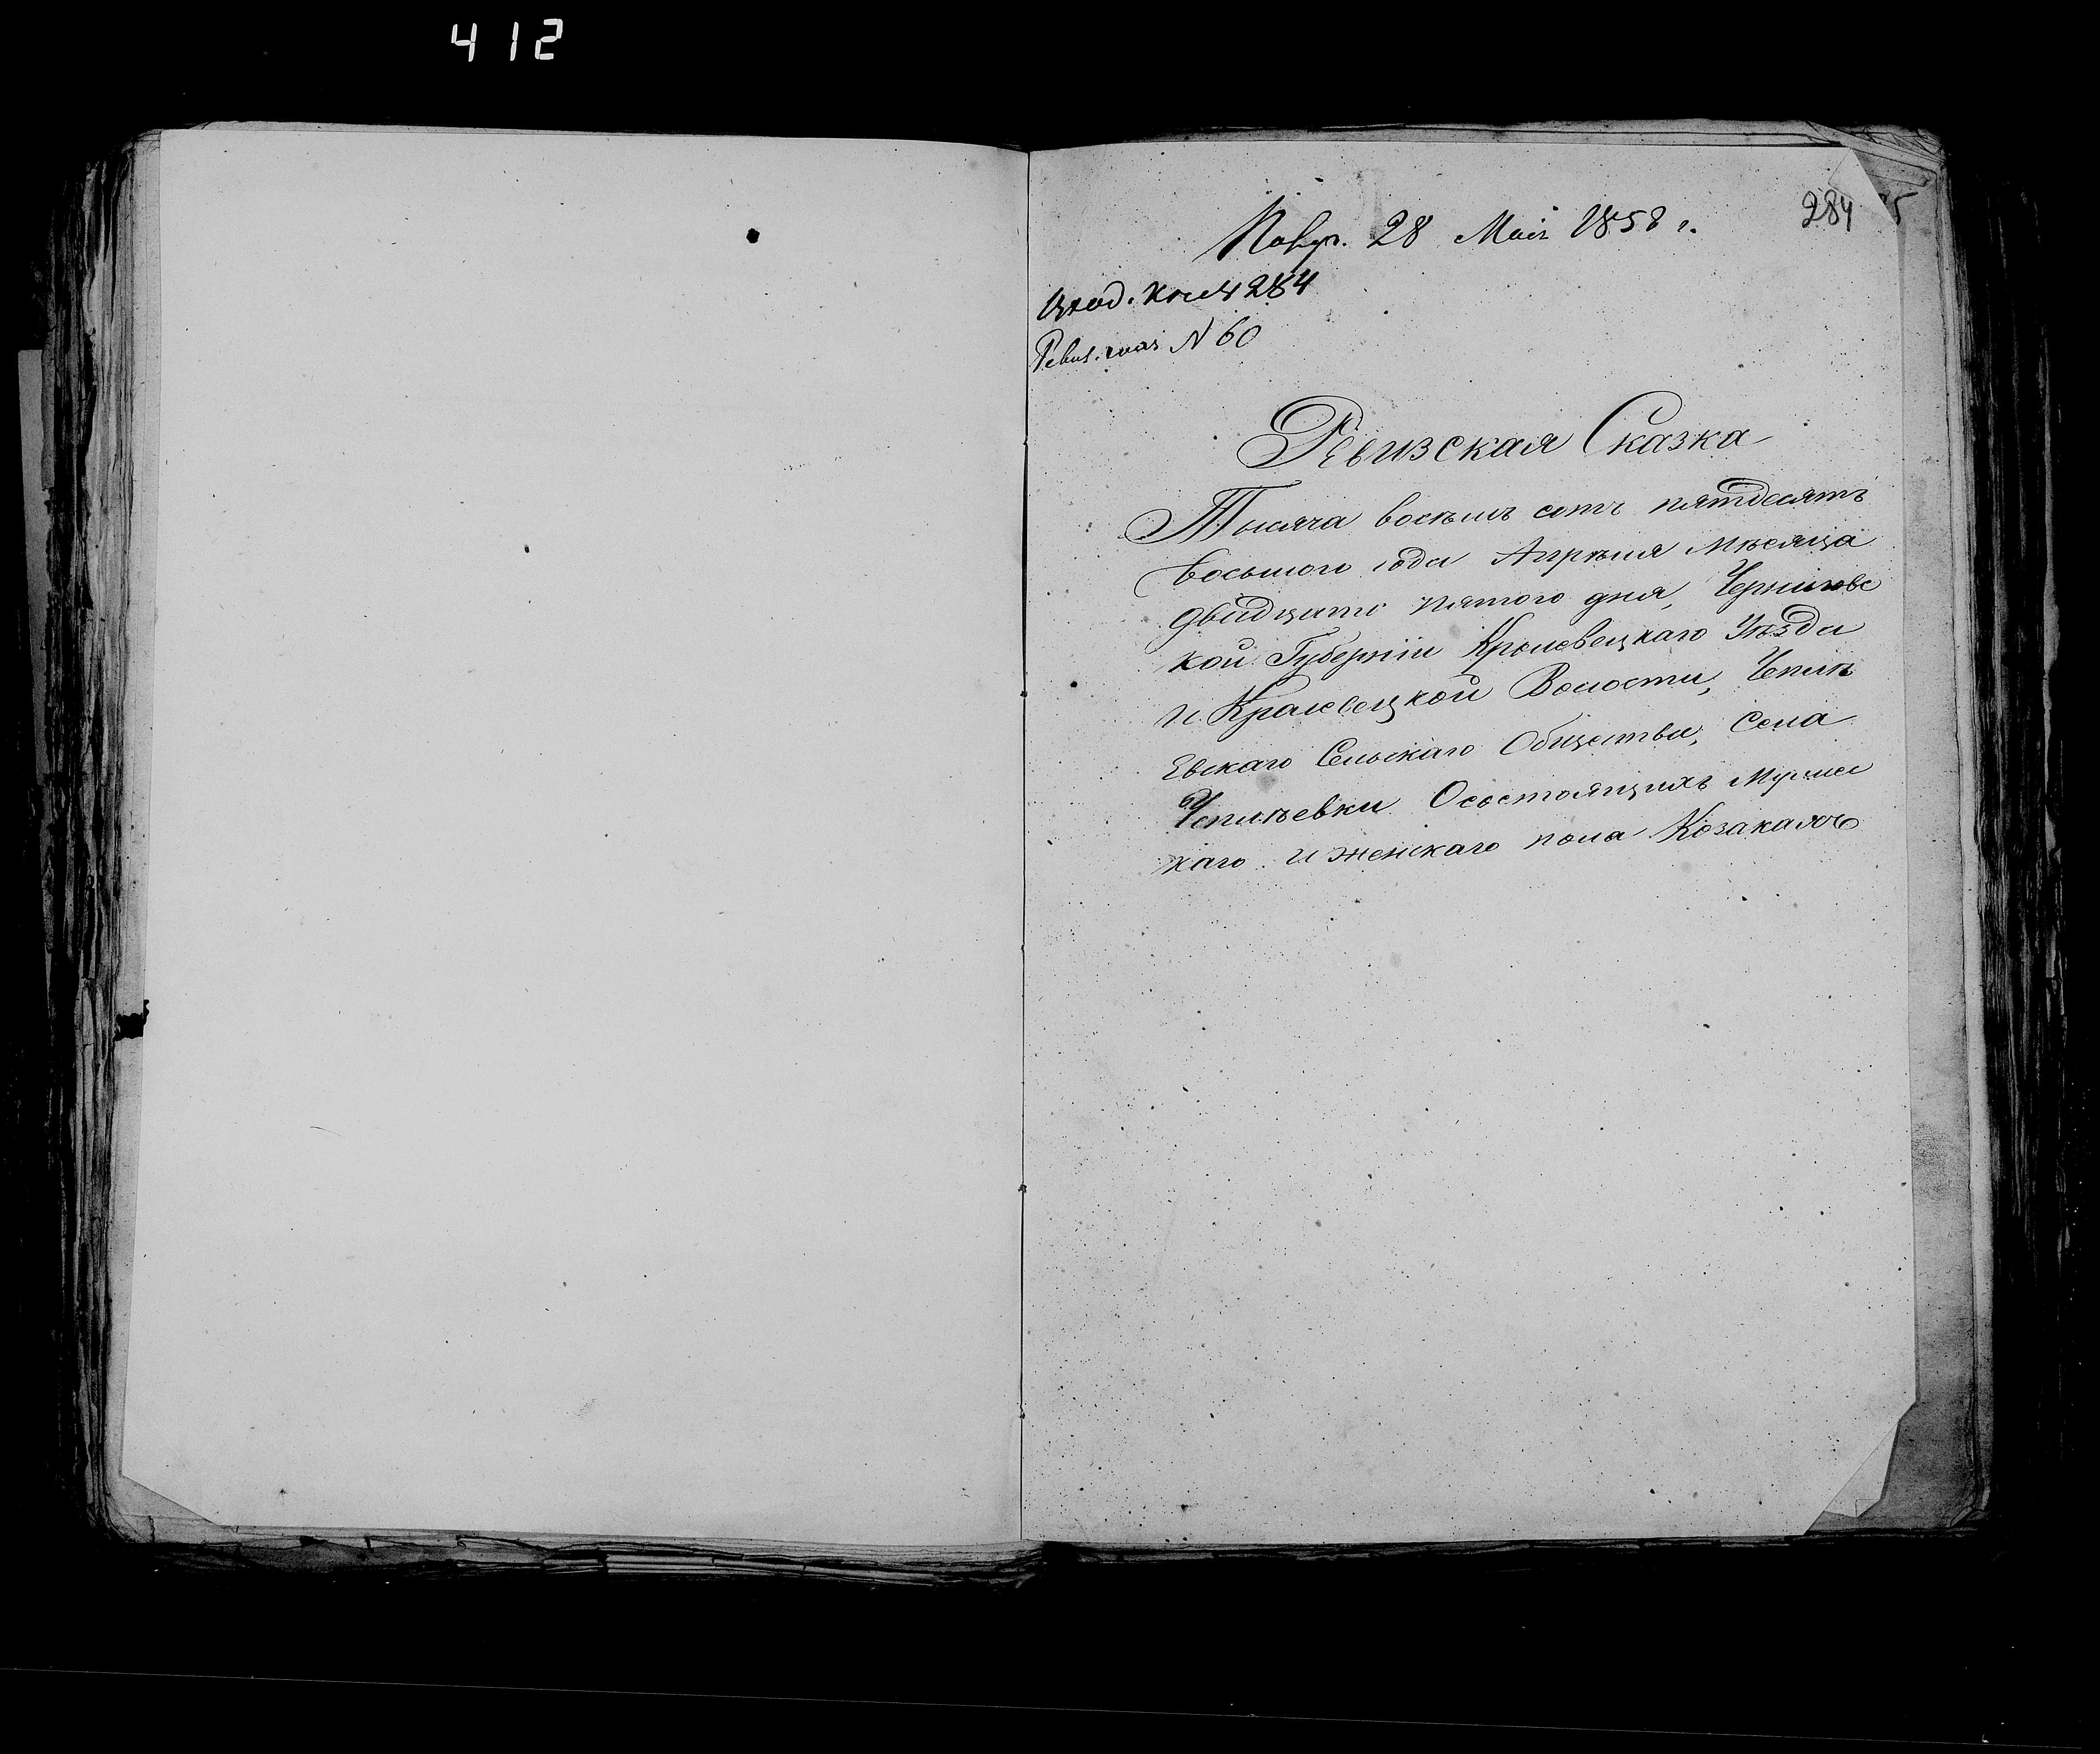 412
284
Повер. 28 Мая 1858 г.
Вход. Книг 284
Ревиз. № 60
Ревизская Сказка
Тысяча восѣмь сотъ пятдесятъ
восьмого года Апрѣля Мѣсяца
двадцать пятого дня, Черниговс
кой Губерніи Кролевецкаго Уѣзда
и Кролевецкой Волости, Чепилѣ
евскаго Сельскаго Общества, Села
Чепилѣевки Осостоящихъ Мужес
каго и женскаго пола Козакахъ